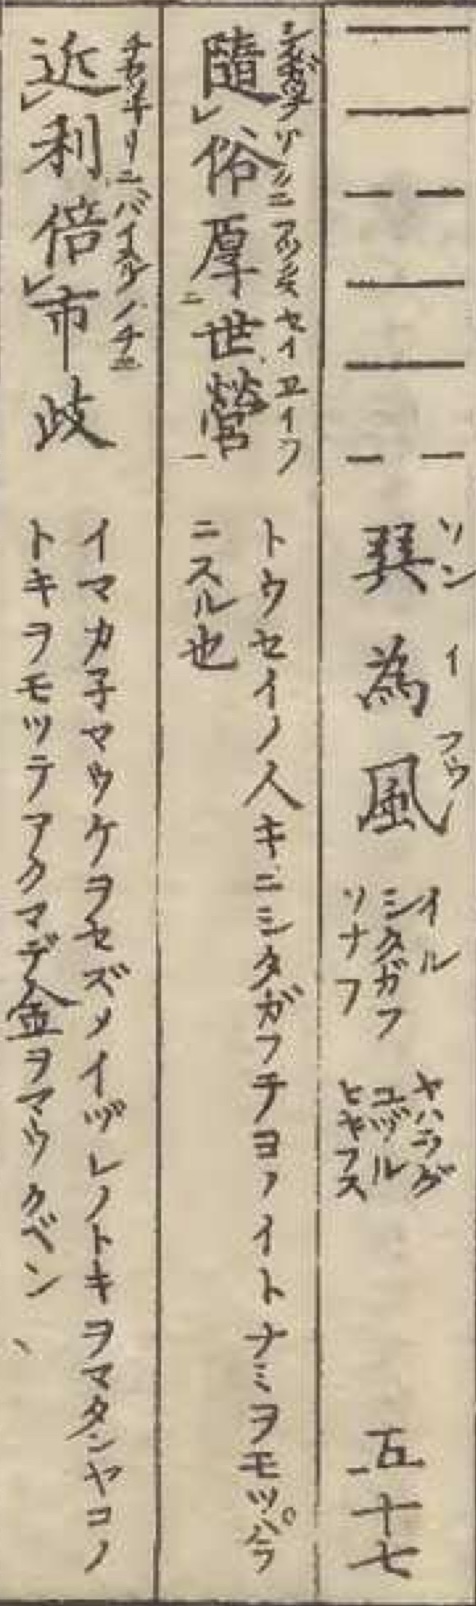 巽為風 五十七
ソン イ フウ
イル
シタガフ
ソナフ
ヤハラグ
ユヅル
ヒヤフス
隨俗厚世營
トウセイノ人キニシタガフテヨノイトナミヲモツパラ
ニスル也
近利倍市歧
イマカ子マウケヲセズメイヅレノトキヲマタンヤコノ
トキヲモツテアクマデ金ヲマウクベン